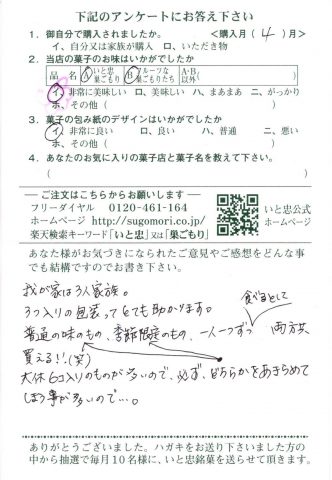 下記のアンケートにお答え下さい
1．御自分で購入されましたか。　＜購入月（ 4 ）月＞
イ、自分又は家族が購入　ロ、いただき物
2．当店の菓子のお味はいかがでしたか
品　名　Ⓐいと忠巣ごもり　Ⓑフルーツな巣ごもりたち　A・B以外（　　　）
イ、非常に美味しい　ロ、美味しい　ハ、まぁまぁ　ニ、がっかり
ホ、その他（　　　）
3．菓子の包み紙のデザインはいかがでしたか
イ、非常に良い　ロ、良い　ハ、普通　ニ、悪い
ホ、その他（　　　）
4．あなたのお気に入りの菓子店と菓子名を教えて下さい。
（　　　）
― ご注文はこちらからお願いします ―
フリーダイヤル　0120-461-164
ホームページ　http://sugomori.co.jp/
楽天検索キーワード「いと忠」又は「巣ごもり」
いと忠公式
ホームページ
あなた様がお気づきになられたご意見やご感想をどんな事
でも結構ですのでお書き下さい。
我が家は3人家族。
3つ入りの包装ってとても助かります。
食べるとして
普通の味のもの、季節限定のもの、一人一つずつ　両方共
買える!!(笑)
大体6コ入りのものが多いので、必ず、どちらかをあきらめて
しまう事が多いので…。
ありがとうございました。ハガキをお送り下さいました方の
中から抽選で毎月10名様に、いと忠銘菓を送らせて頂きます。